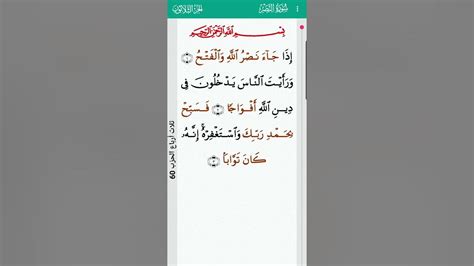 سُورَةُ النَّصْرِ
الجزء الثلاثون
بِسْمِ اللَّهِ الرَّحْمَٰنِ الرَّحِيمِ
إِذَا جَآءَ نَصْرُ اللَّهِ وَالْفَتْحُ ١
وَرَأَيْتَ النَّاسَ يَدْخُلُونَ فِي
دِينِ اللَّهِ أَفْوَاجًا ٢ فَسَبِّحْ
بِحَمْدِ رَبِّكَ وَاسْتَغْفِرْهُ إِنَّهُ
كَانَ تَوَّابًا ٣
ثلاث أرباع الحزب 60